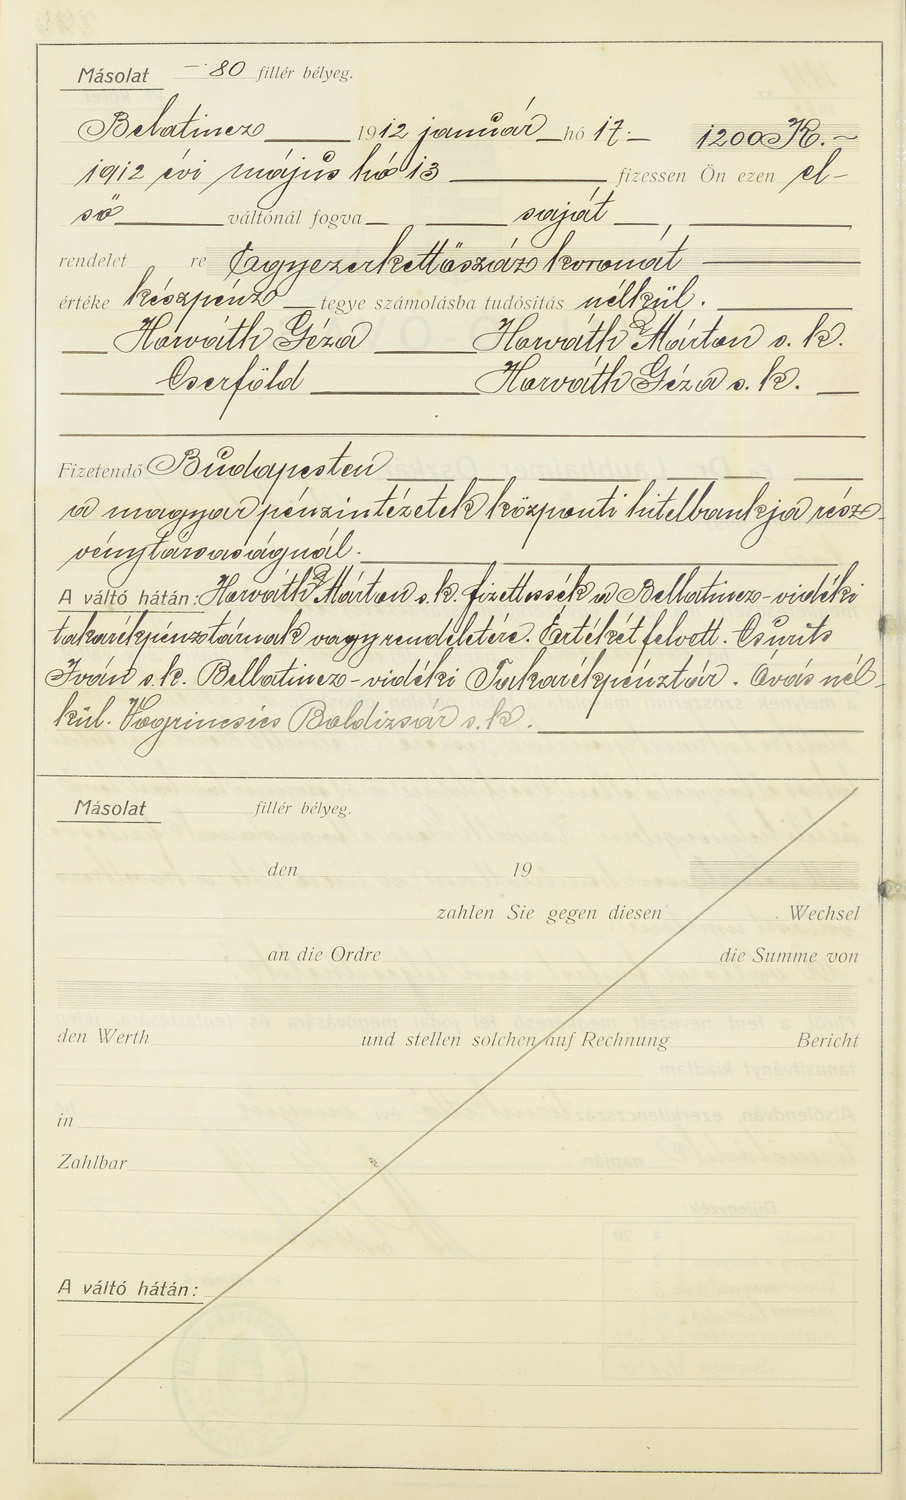 Másolat – 80 fillér bélyeg.
Belatincz 1912 január hó 17. 1200 K. –
1912 évi május hó 13 fizessen Ön ezen el-
ső váltónál fogva saját
rendelet re Egyezerkettőszáz koronát
értéke készpénz tegye számolásba tudósítás nélkül.
Horváth Géza Horváth Márton s. k.
Cserföld Horváth Géza s. k.
Fizetendő Budapesten
a magyar pénzintézetek központi hitelbankja rész-
vénytársaságnál.
A váltó hátán: Horváth Márton s. k. fizettessék a Bellatincz-vidéki
takarékpénztárnak vagy rendeletére. Értékét felvett. Csurits
Iván s. k. Bellatincz-vidéki Takarékpénztár. Óvás nél-
kül. Vogrincsics Boldizsár s. k.
Másolat fillér bélyeg.
den 19
zahlen Sie gegen diesen Wechsel
an die Ordre die Summe von
den Werth und stellen solchen auf Rechnung Bericht
in
Zahlbar
A váltó hátán: